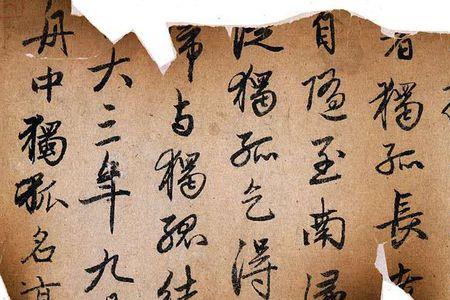 獨孤長
自隨至南潯
從獨孤乞得
歸与獨孤結
大三年九
舟中獨孤名淳